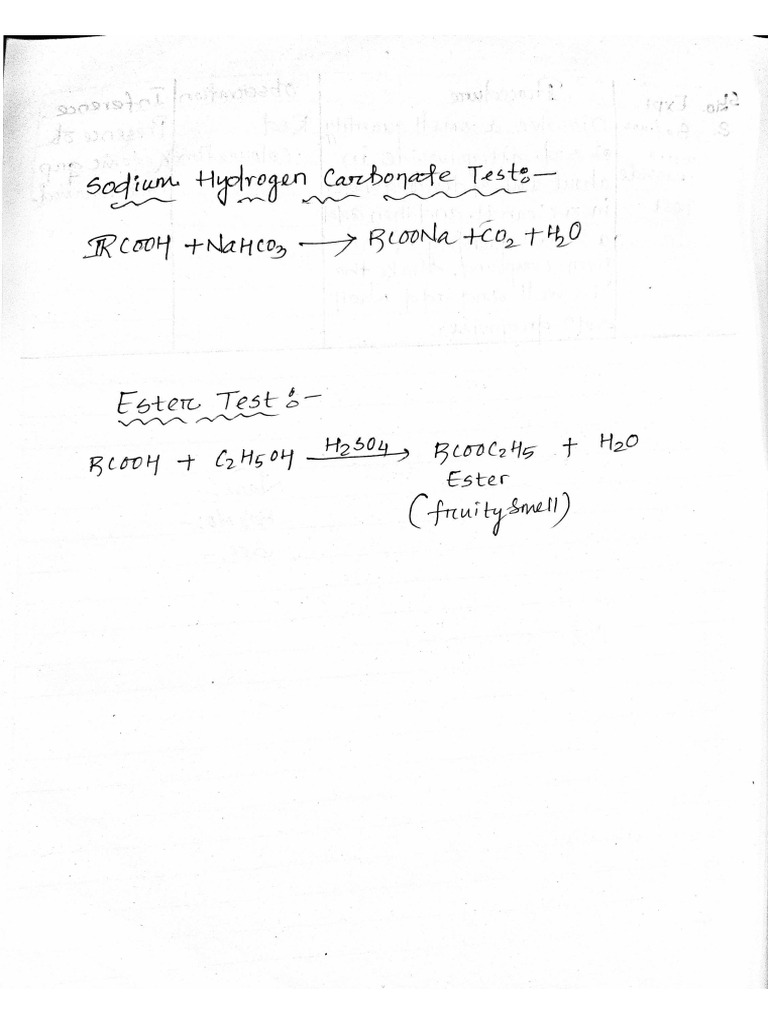 Sodium Hydrogen Carbonate Test:-
RCOOH + NaHCO3 ⟶ RCOONa + CO2 + H2O
Ester Test:-
RCOOH + C2H5OH H2SO4⟶ RCOOC2H5 + H2O
Ester
(fruity smell)